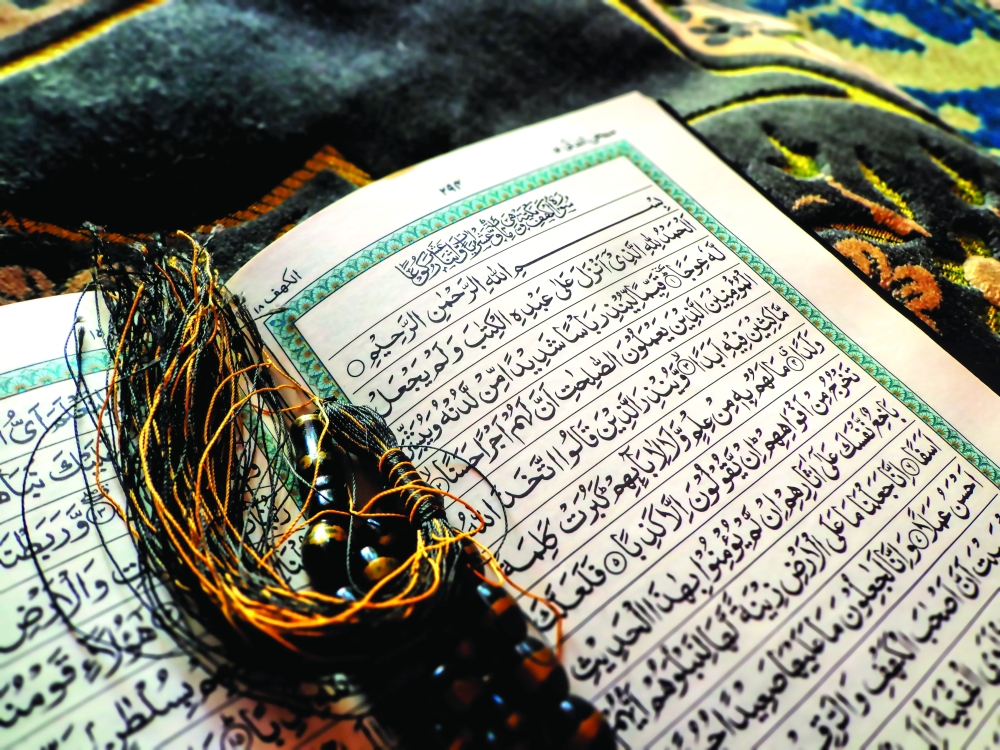 ٢٩٣
الكهف ١٨
بِسْمِ اللّٰهِ الرَّحْمٰنِ الرَّحِیْمِ
اَلْحَمْدُ لِلّٰهِ الَّذِیْۤ اَنْزَلَ عَلٰی عَبْدِهِ الْكِتٰبَ وَ لَمْ یَجْعَلْ
لَّهٗ عِوَجًا ۱ قَیِّمًا لِّیُنْذِرَ بَاْسًا شَدِیْدًا مِّنْ لَّدُنْهُ وَ یُبَشِّرَ
الْمُؤْمِنِیْنَ الَّذِیْنَ یَعْمَلُوْنَ الصّٰلِحٰتِ اَنَّ لَهُمْ اَجْرًا حَسَنًا
مَّاكِثِیْنَ فِیْهِ اَبَدًا ۳ وَّ یُنْذِرَ الَّذِیْنَ قَالُوا اتَّخَذَ اللّٰهُ
وَلَدًا ۴ مَا لَهُمْ بِهٖ مِنْ عِلْمٍ وَّ لَا لِاٰبَآىِٕهِمْ كَبُرَتْ كَلِمَةً
تَخْرُجُ مِنْ اَفْوَاهِهِمْ اِنْ یَّقُوْلُوْنَ اِلَّا كَذِبًا ۵ فَلَعَلَّكَ
بَاخِعٌ نَّفْسَكَ عَلٰۤی اٰثَارِهِمْ اِنْ لَّمْ یُؤْمِنُوْا بِهٰذَا الْحَدِیْثِ
اَسَفًا ۶ اِنَّا جَعَلْنَا مَا عَلَی الْاَرْضِ زِیْنَةً لَّهَا لِنَبْلُوَهُمْ اَیُّهُمْ
حْسَنُ عَمَلًا ۷ وَ اِنَّا لَجٰعِلُوْنَ مَا عَلَیْهَا صَعِیْدًا جُرُزًا
اَنَّ اَصْحٰبَ الْكَهْفِ وَ الرَّقِیْ
الْفِتْیَةُ
نَبَاَ
وَّ رَبَطْنَا
وَ الْاَرْضِ
هٰۤؤُلَآءِ قَوْمُنَا
بِسُلْطٰنٍ